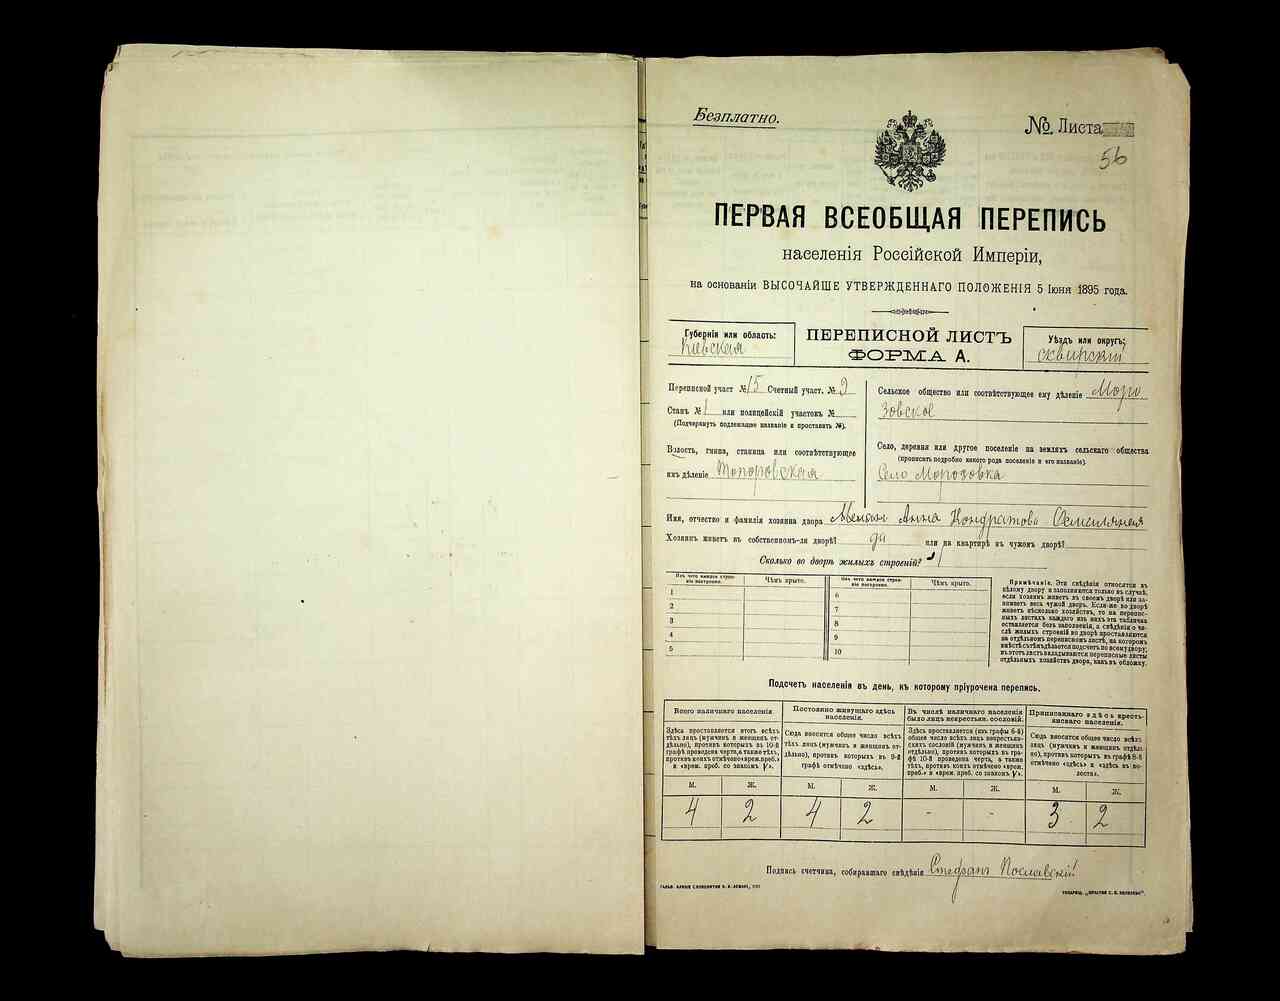 Безплатно.
№ Листа
56
ПЕРВАЯ ВСЕОБЩАЯ ПЕРЕПИСЬ
населенія Россійской Имперіи,
на основаніи ВЫСОЧАЙШЕ УТВЕРЖДЕННАГО ПОЛОЖЕНІЯ 5 Іюня 1895 года.
Губернія или область:
Кіевская
ПЕРЕПИСНОЙ ЛИСТЪ
ФОРМА А.
Уѣздъ или округъ:
сквирскій
Переписной участ № 15 Счетный участ. № 9
Станъ № 1 или полицейскій участокъ №
(Подчеркнуть подлежащее названіе и проставить №).
Волость, гмина, станица или соотвѣтствующее
имъ дѣленіе Топоровская
Сельское общество или соотвѣтствующее ему дѣленіе Моро
зовское
Село, деревня или другое поселеніе на земляхъ сельскаго общества
(прописать подробно какого рода поселеніе и его названіе).
Село Морозовка
Имя, отчество и фамилія хозяина двора Анна Кондратова
Хозяинъ живетъ въ собственномъ-ли дворѣ? да или на квартирѣ въ чужомъ дворѣ?
Сколько во дворѣ жилыхъ строеній? 1
Изъ чего каждое строе-
ніе построено.
Чѣмъ крыто.
1
2
3
4
5
Изъ чего каждое строе-
ніе построено.
Чѣмъ крыто.
6
7
8
9
10
Примѣчаніе. Эти свѣдѣнія относятся къ
цѣлому двору и заполняются только въ случаѣ,
если хозяинъ живетъ въ своемъ дворѣ или за-
нимаетъ весь чужой дворъ. Если-же во дворѣ
живетъ нѣсколько хозяйствъ, то на перепис-
ныхъ листахъ каждаго изъ нихъ эта табличка
оставляется безъ заполненія, а свѣдѣнія о чи-
слѣ жилыхъ строеній во дворѣ проставляются
на отдѣльномъ переписномъ листѣ, на которомъ
вмѣстѣ съ тѣмъ дѣлается подсчетъ по всему двору;
въ этотъ листъ вкладываются переписные листы
отдѣльныхъ хозяйствъ двора, какъ въ обложку.
Подсчетъ населенія въ день, къ которому пріурочена перепись.
Всего наличнаго населенія
Здѣсь проставляется итогъ всѣхъ
тѣхъ лицъ (мужчинъ и женщинъ от-
дѣльно), противъ которыхъ въ 10-й
графѣ проведена черта, а также тѣхъ,
противъ коихъ отмѣчено «врем. преб.»
и «врем. преб. со знакомъ V».
М. Ж.
4 2
Постоянно живущаго здѣсь
населенія.
Сюда вносится общее число всѣхъ
тѣхъ лицъ (мужчинъ и женщинъ от-
дѣльно), противъ которыхъ въ 9-й
графѣ отмѣчено «здѣсь».
М. Ж.
4 2
Въ числѣ наличнаго населенія
было лицъ некрестьян. сословій.
Здѣсь проставляется (изъ графы 6-й)
общее число всѣхъ лицъ некрестьян-
скихъ сословій (мужчинъ и женщинъ
отдѣльно), противъ которыхъ въ гра-
фѣ 10-й проведена черта, а также
тѣхъ, противъ коихъ отмѣчено «врем.
преб.» и «врем. преб. со знакомъ V».
М. Ж.
- -
Приписаннаго здѣсь кресть-
янскаго населенія.
Сюда вносится общее число всѣхъ
лицъ (мужчинъ и женщинъ отдѣль-
но), противъ которыхъ въ графѣ 8-й
отмѣчено «здѣсь» и «здѣсь въ во-
лости».
М. Ж.
3 2
Подпись счетчика, собиравшаго свѣдѣнія Стефанъ Пославскій